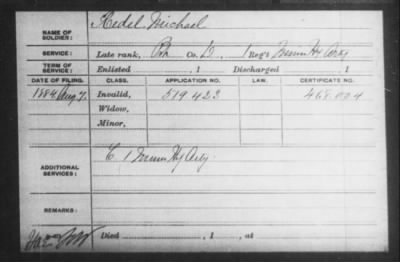 NAME OF SOLDIER: Hedel Michael
SERVICE: Late rank, Co. D, 1 Reg't Minn Hy Arty
TERM OF SERVICE: Enlisted , 1 Discharged , 1
DATE OF FILING. CLASS. APPLICATION NO. LAW. CERTIFICATE NO.
1884 Aug 7. Invalid, 519 423 468.004
Widow,
Minor,
ADDITIONAL SERVICES: C 1 Minn Hy Arty
REMARKS:
Died , 1 , at